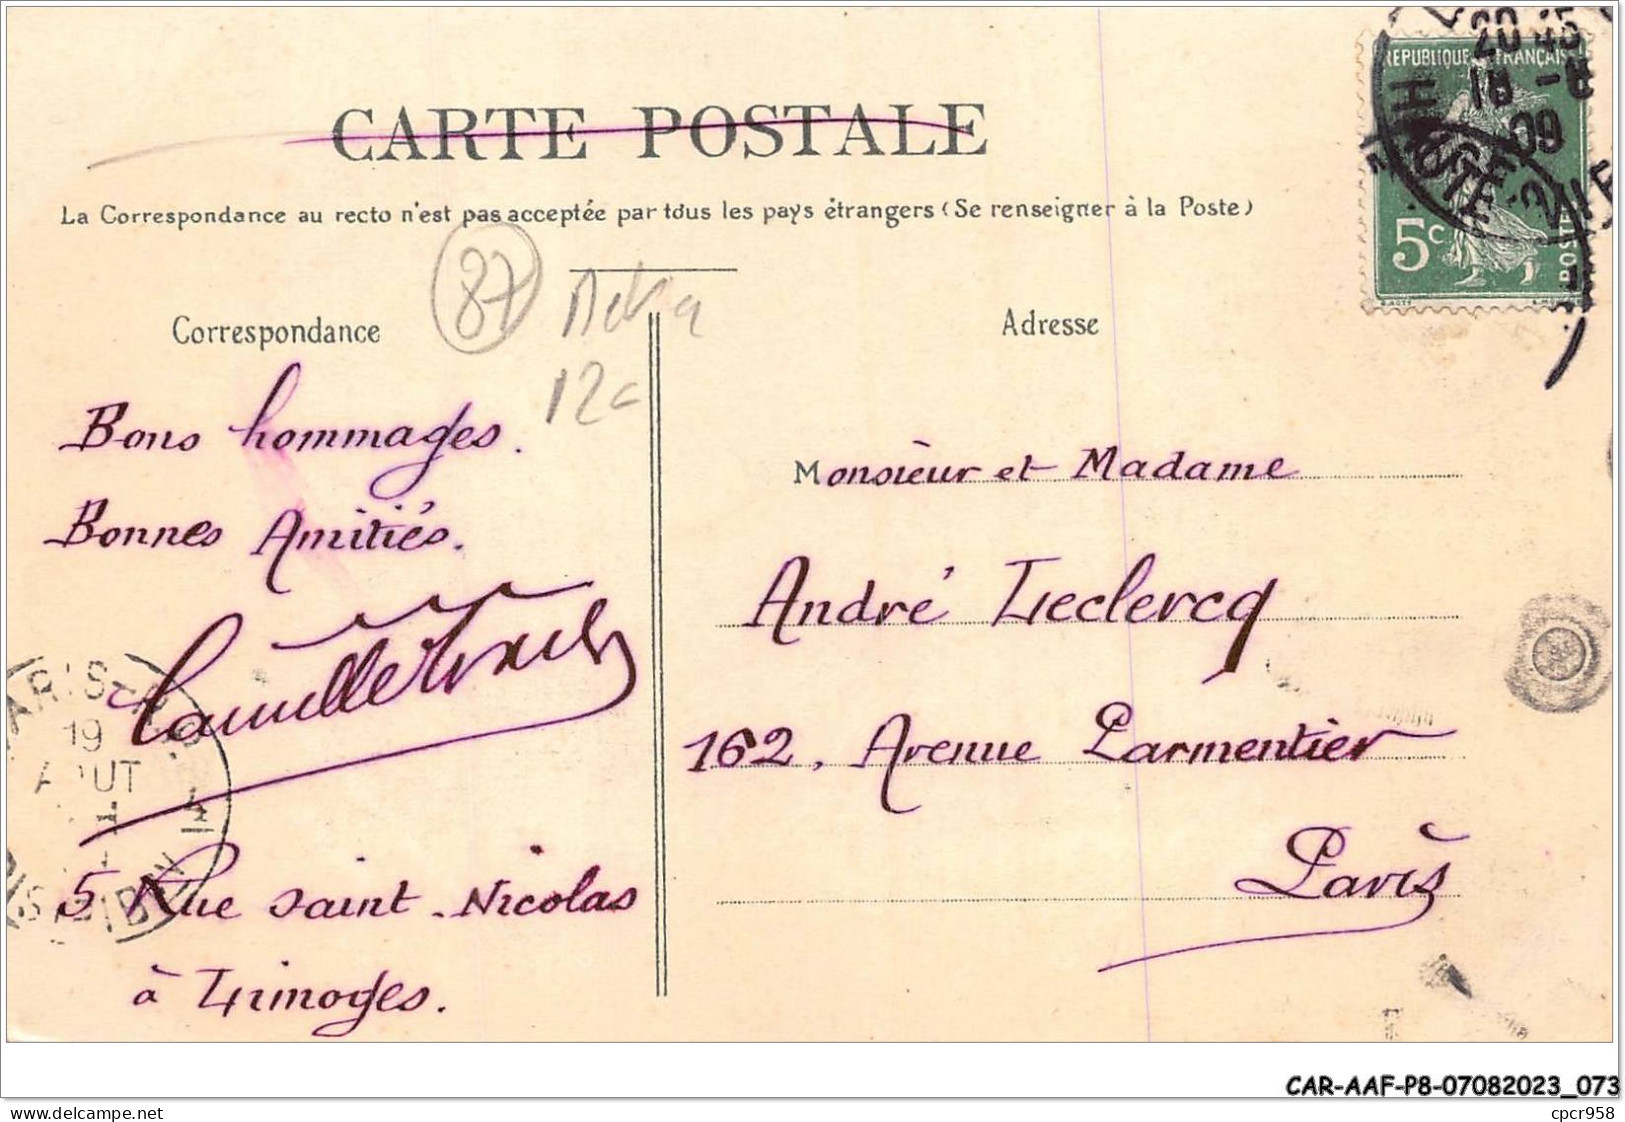 CARTE POSTALE
La Correspondance au recto n'est pas acceptée par tous les pays étrangers (Se renseigner à la Poste)
REPUBLIQUE FRANÇAISE
5c
POSTES
20 45
18 -8
09
HTE VIENNE
87
12c
Correspondance
Bons hommages.
Bonnes Amitiés.
5 Rue saint-Nicolas
à Limoges.
PARIS
19
AOUT
4
DISTRIBUTION
Adresse
Monsieur et Madame
André Leclercq
162, Avenue Parmentier
Paris
CAR-AAF-P8-07082023_073
www.delcampe.net
cpcr958